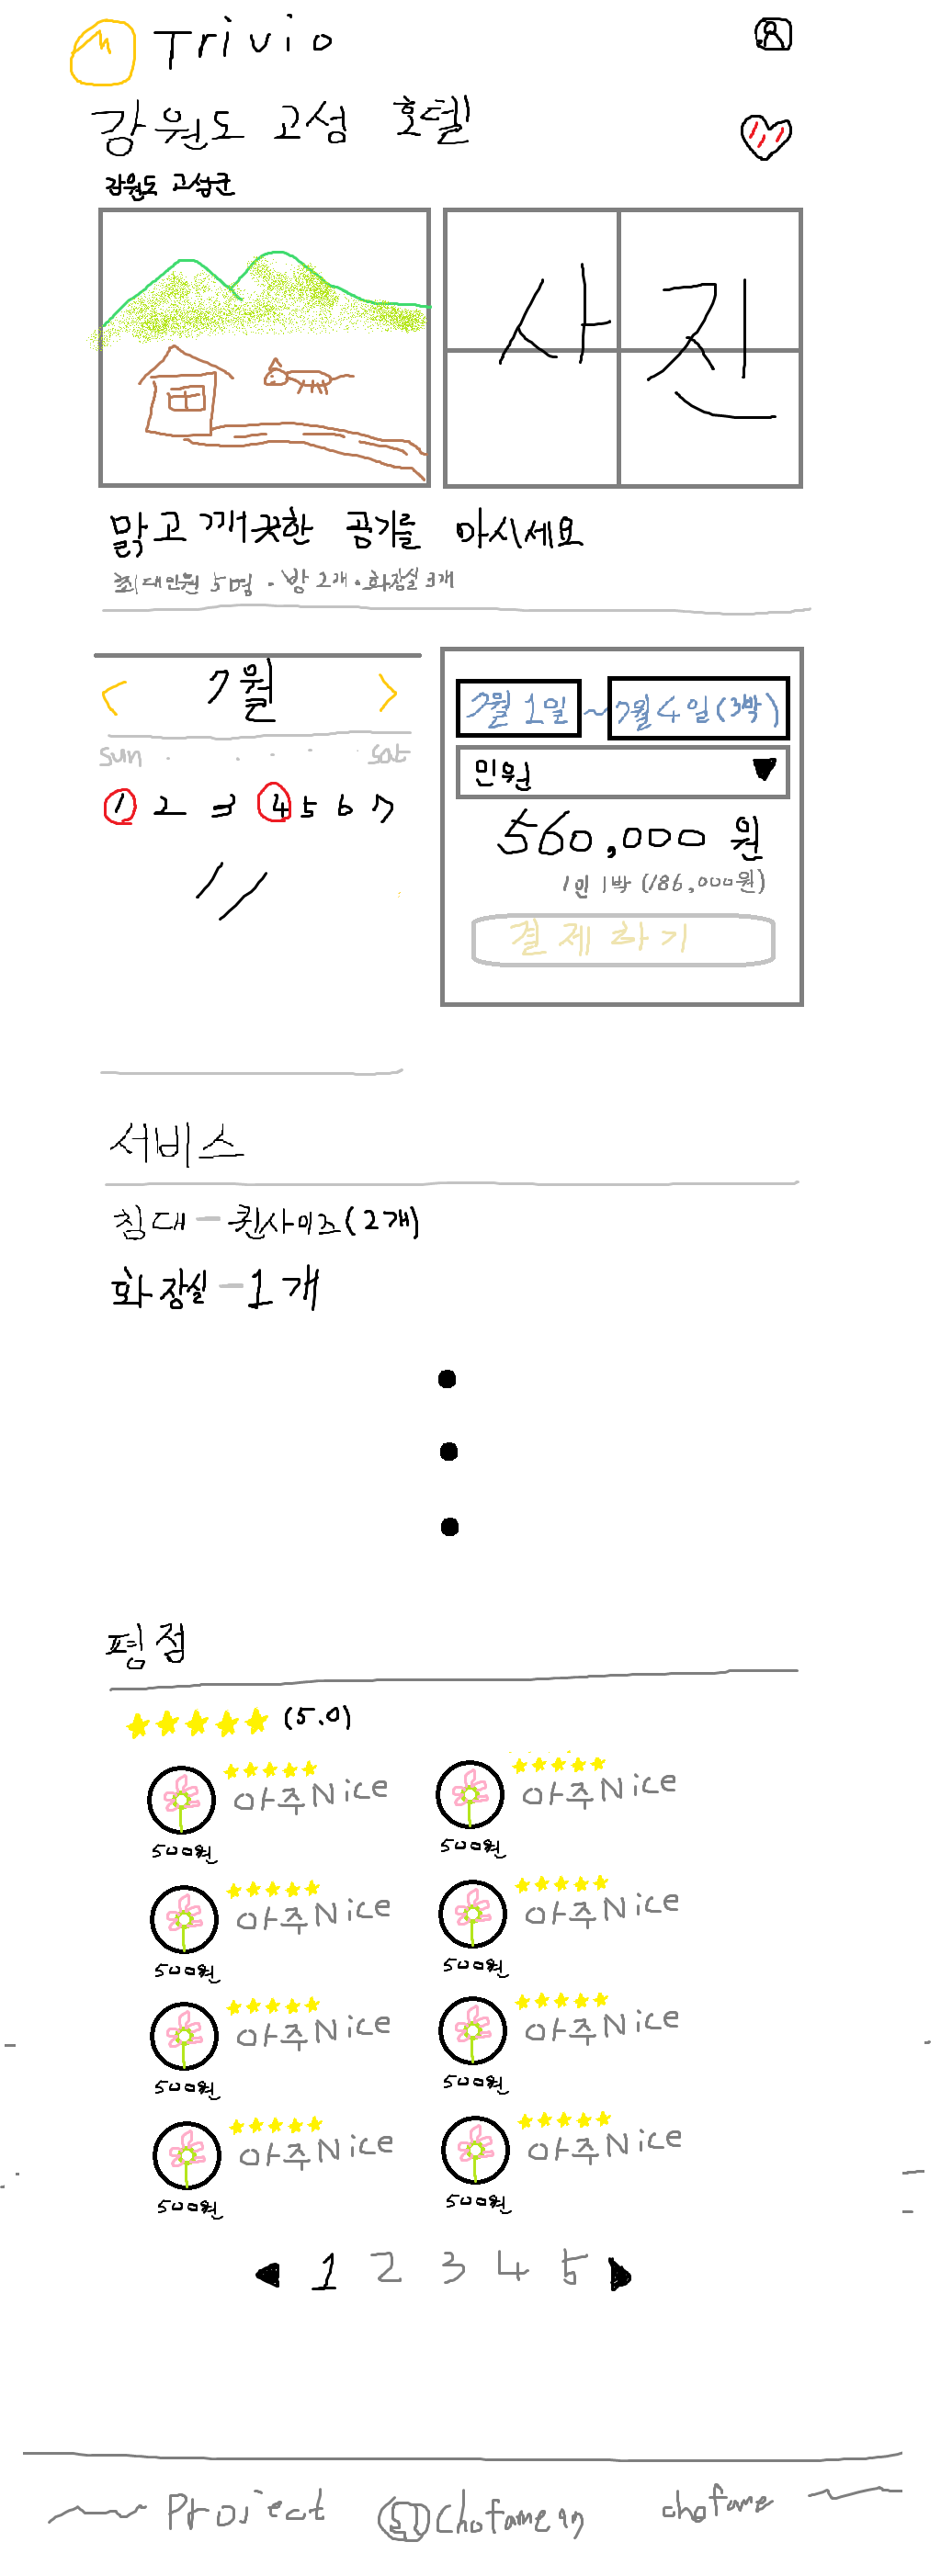 Trivio
강원도 고섬 호텔
강원도 고성군
사진
맑고 깨끗한 공기를 마시세요
최대인원 5명 · 방 2개 · 화장실 3개
< 7월 >
sun · · · · sat
1 2 3 4 5 6 7
7월 1일 ~ 7월 4일 (3박)
인원 ▼
560,000 원
1인 1박 (186,000원)
결제하기
서비스
침대 - 퀸사이즈 (2개)
화장실 - 1개
평점
★★★★★ (5.0)
★★★★★ ★★★★★
아주Nice 아주Nice
500원 500원
★★★★★ ★★★★★
아주Nice 아주Nice
500원 500원
★★★★★ ★★★★★
아주Nice 아주Nice
500원 500원
★★★★★ ★★★★★
아주Nice 아주Nice
500원 500원
◀ 1 2 3 4 5 ▶
Project chofame